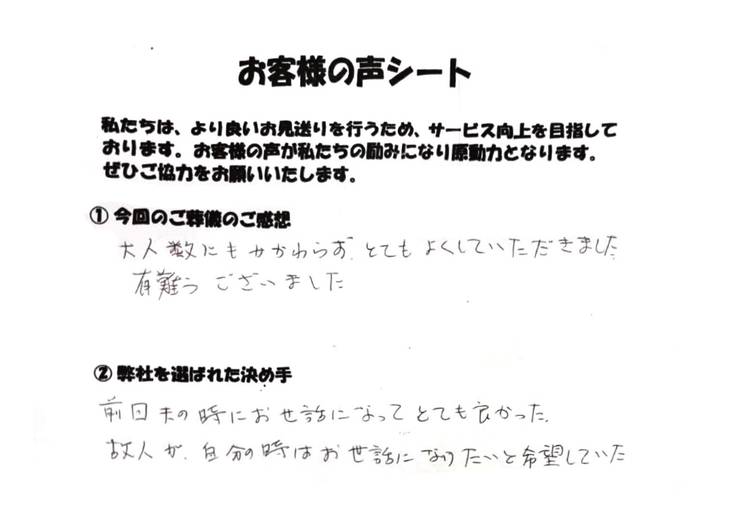 お客様の声シート
私たちは、より良いお見送りを行うため、サービス向上を目指して
おります。お客様の声が私たちの励みになり原動力となります。
ぜひご協力をお願いいたします。
① 今回のご葬儀のご感想
大人数にもかかわらず、とてもよくしていただきました
有難うございました
② 弊社を選ばれた決め手
前回夫の時にお世話になってとても良かった。
故人が、自分の時はお世話になりたいと希望していた